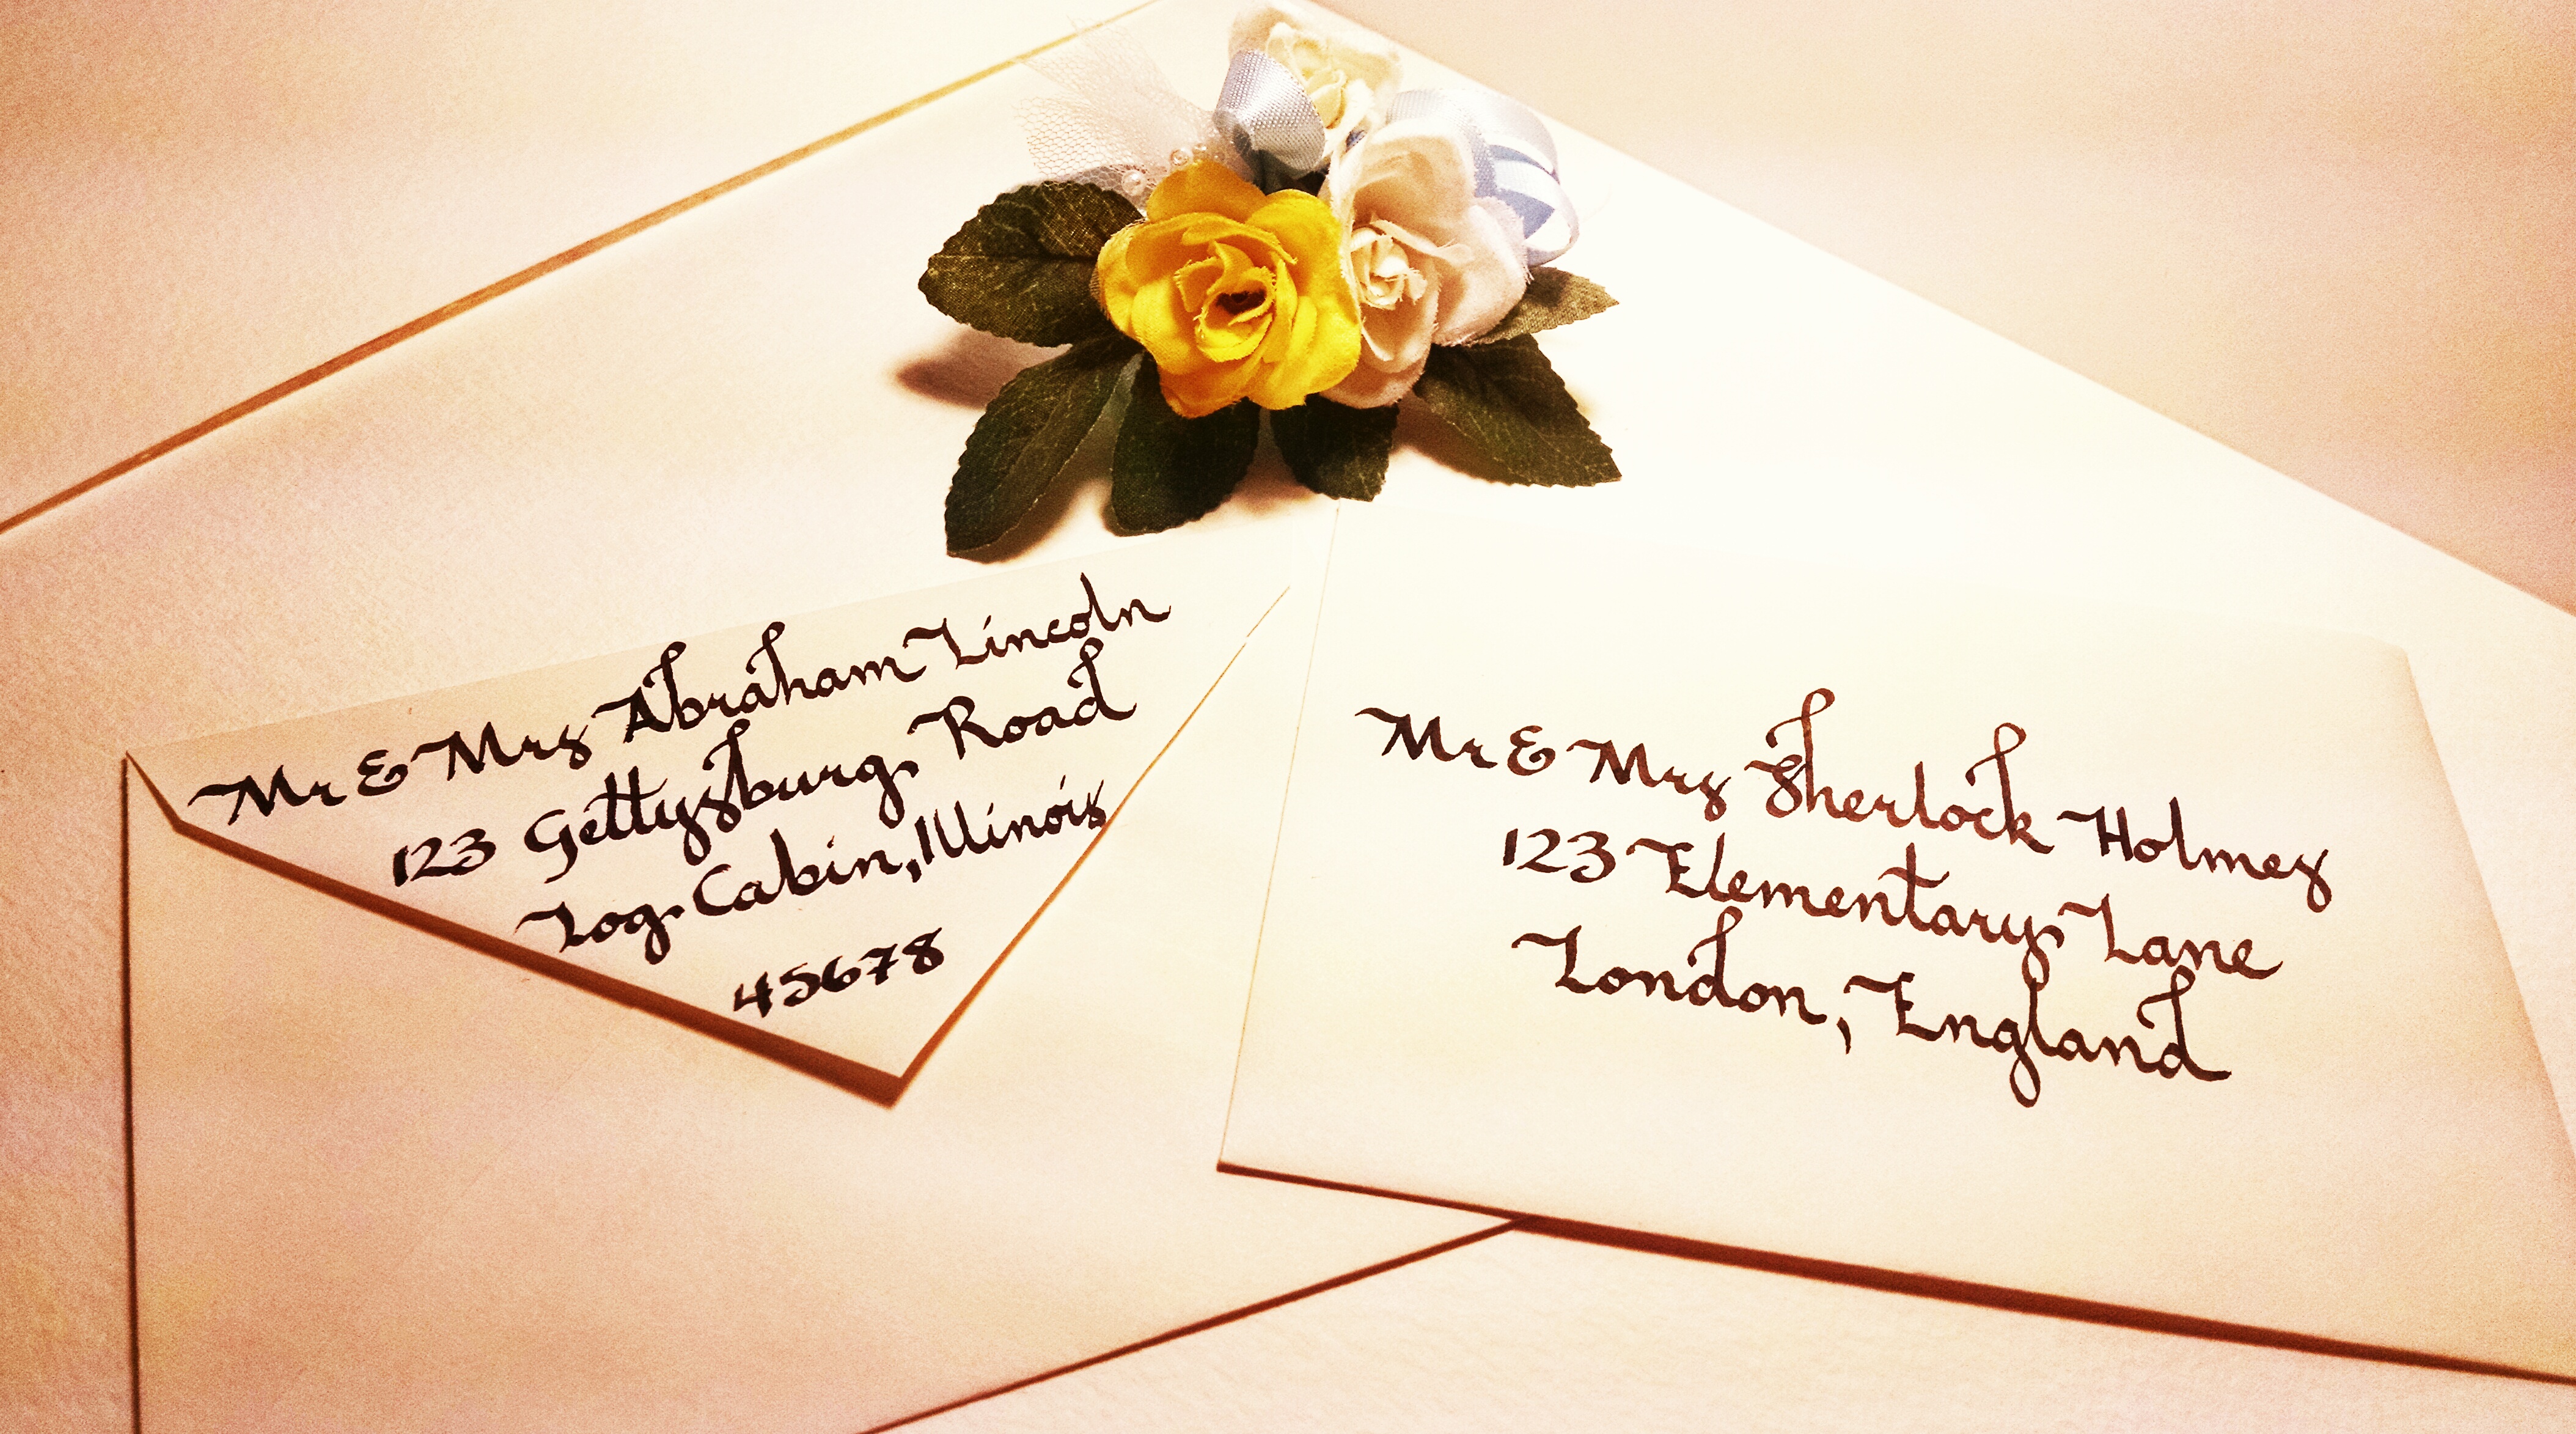 Mr & Mrs Abraham Lincoln
123 Gettysburg Road
Log Cabin, Illinois
45678
Mr & Mrs Sherlock Holmes
123 Elementary Lane
London, England